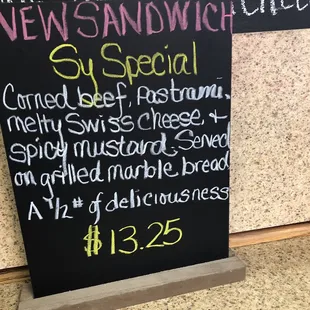 NEW SANDWICH
Sy Special
Corned beef, Pastrami,
melty Swiss cheese, +
spicy mustard. Served
on grilled marble bread
A 1/2 # of deliciousness
$13.25